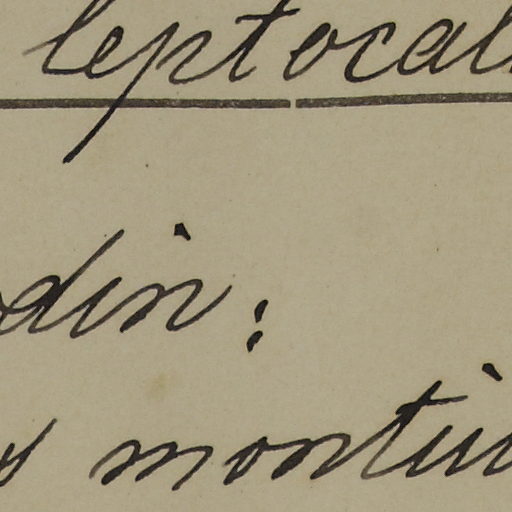 leptocal
din:
s montiu